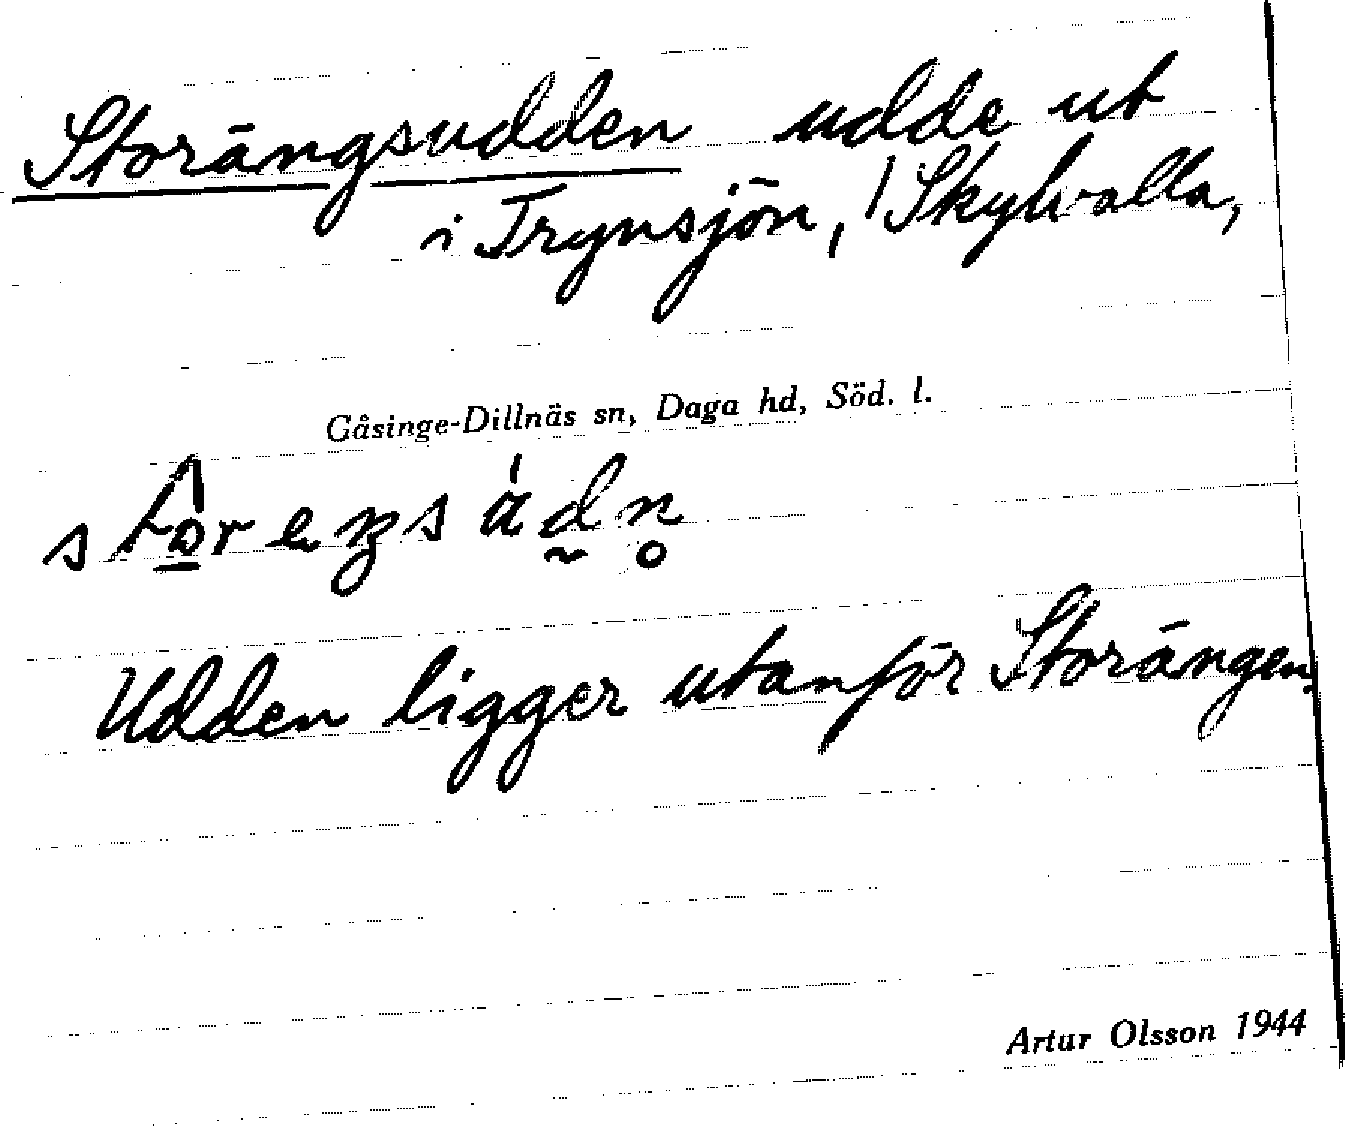 Storängsudden udde ut
i Trynsjön, /Skylvalla,
Gåsinge-Dillnäs sn, Daga hd, Söd. l.
Udden ligger utanför Storängen.
Artur Olsson 1944